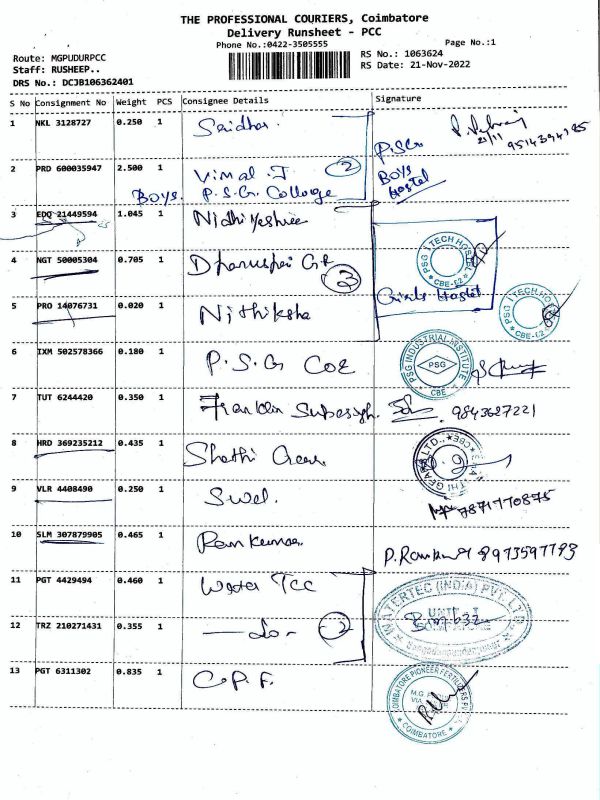 THE PROFESSIONAL COURIERS, Coimbatore
Delivery Runsheet - PCC
Phone No.:0422-3505555
Page No.:1
Route: MGPUDURPCC
Staff: RUSHEEP..
DRS No.: DCJB106362401
RS No.: 1063624
RS Date: 21-Nov-2022
S No Consignment No Weight PCS Consignee Details Signature
1 NKL 3128727 0.250 1 Sridhar P.SG 21/11 9514394185
2 PRD 600035947 2.500 1 Vimal .J 2 Boys Hostel
BOYS. P.S.G. College
3 EDQ 21449594 1.045 1 Nidhiyashree
4 NGT 50005304 0.705 1 3 PSG I TECH HOSTEL CBE-62
Girls Hostel
5 PRO 14076731 0.020 1 Nithiksha PSG I TECH HOSTEL CBE-62
6 IXM 502578366 0.180 1 P.S.G COE PSG INDUSTRIAL INSTITUTE PSG CBE
7 TUT 6244420 0.350 1 Franklin 9843627221
8 HRD 369235212 0.435 1 Shathi Gears
9 VLR 4408490 0.250 1 Swel. 7871770875
10 SLM 307879905 0.465 1 Ramkumar P. Ramkumar 8973597793
11 PGT 4429494 0.460 1 Water Tec WATERTEC (INDIA) PVT. LTD.
UNIT-I
12 TRZ 210271431 0.355 1 —do- 2
13 PGT 6311302 0.835 1 C.P.F. COIMBATORE PIONEER FERTILIZERS
M.G.
VIA
COIMBATORE